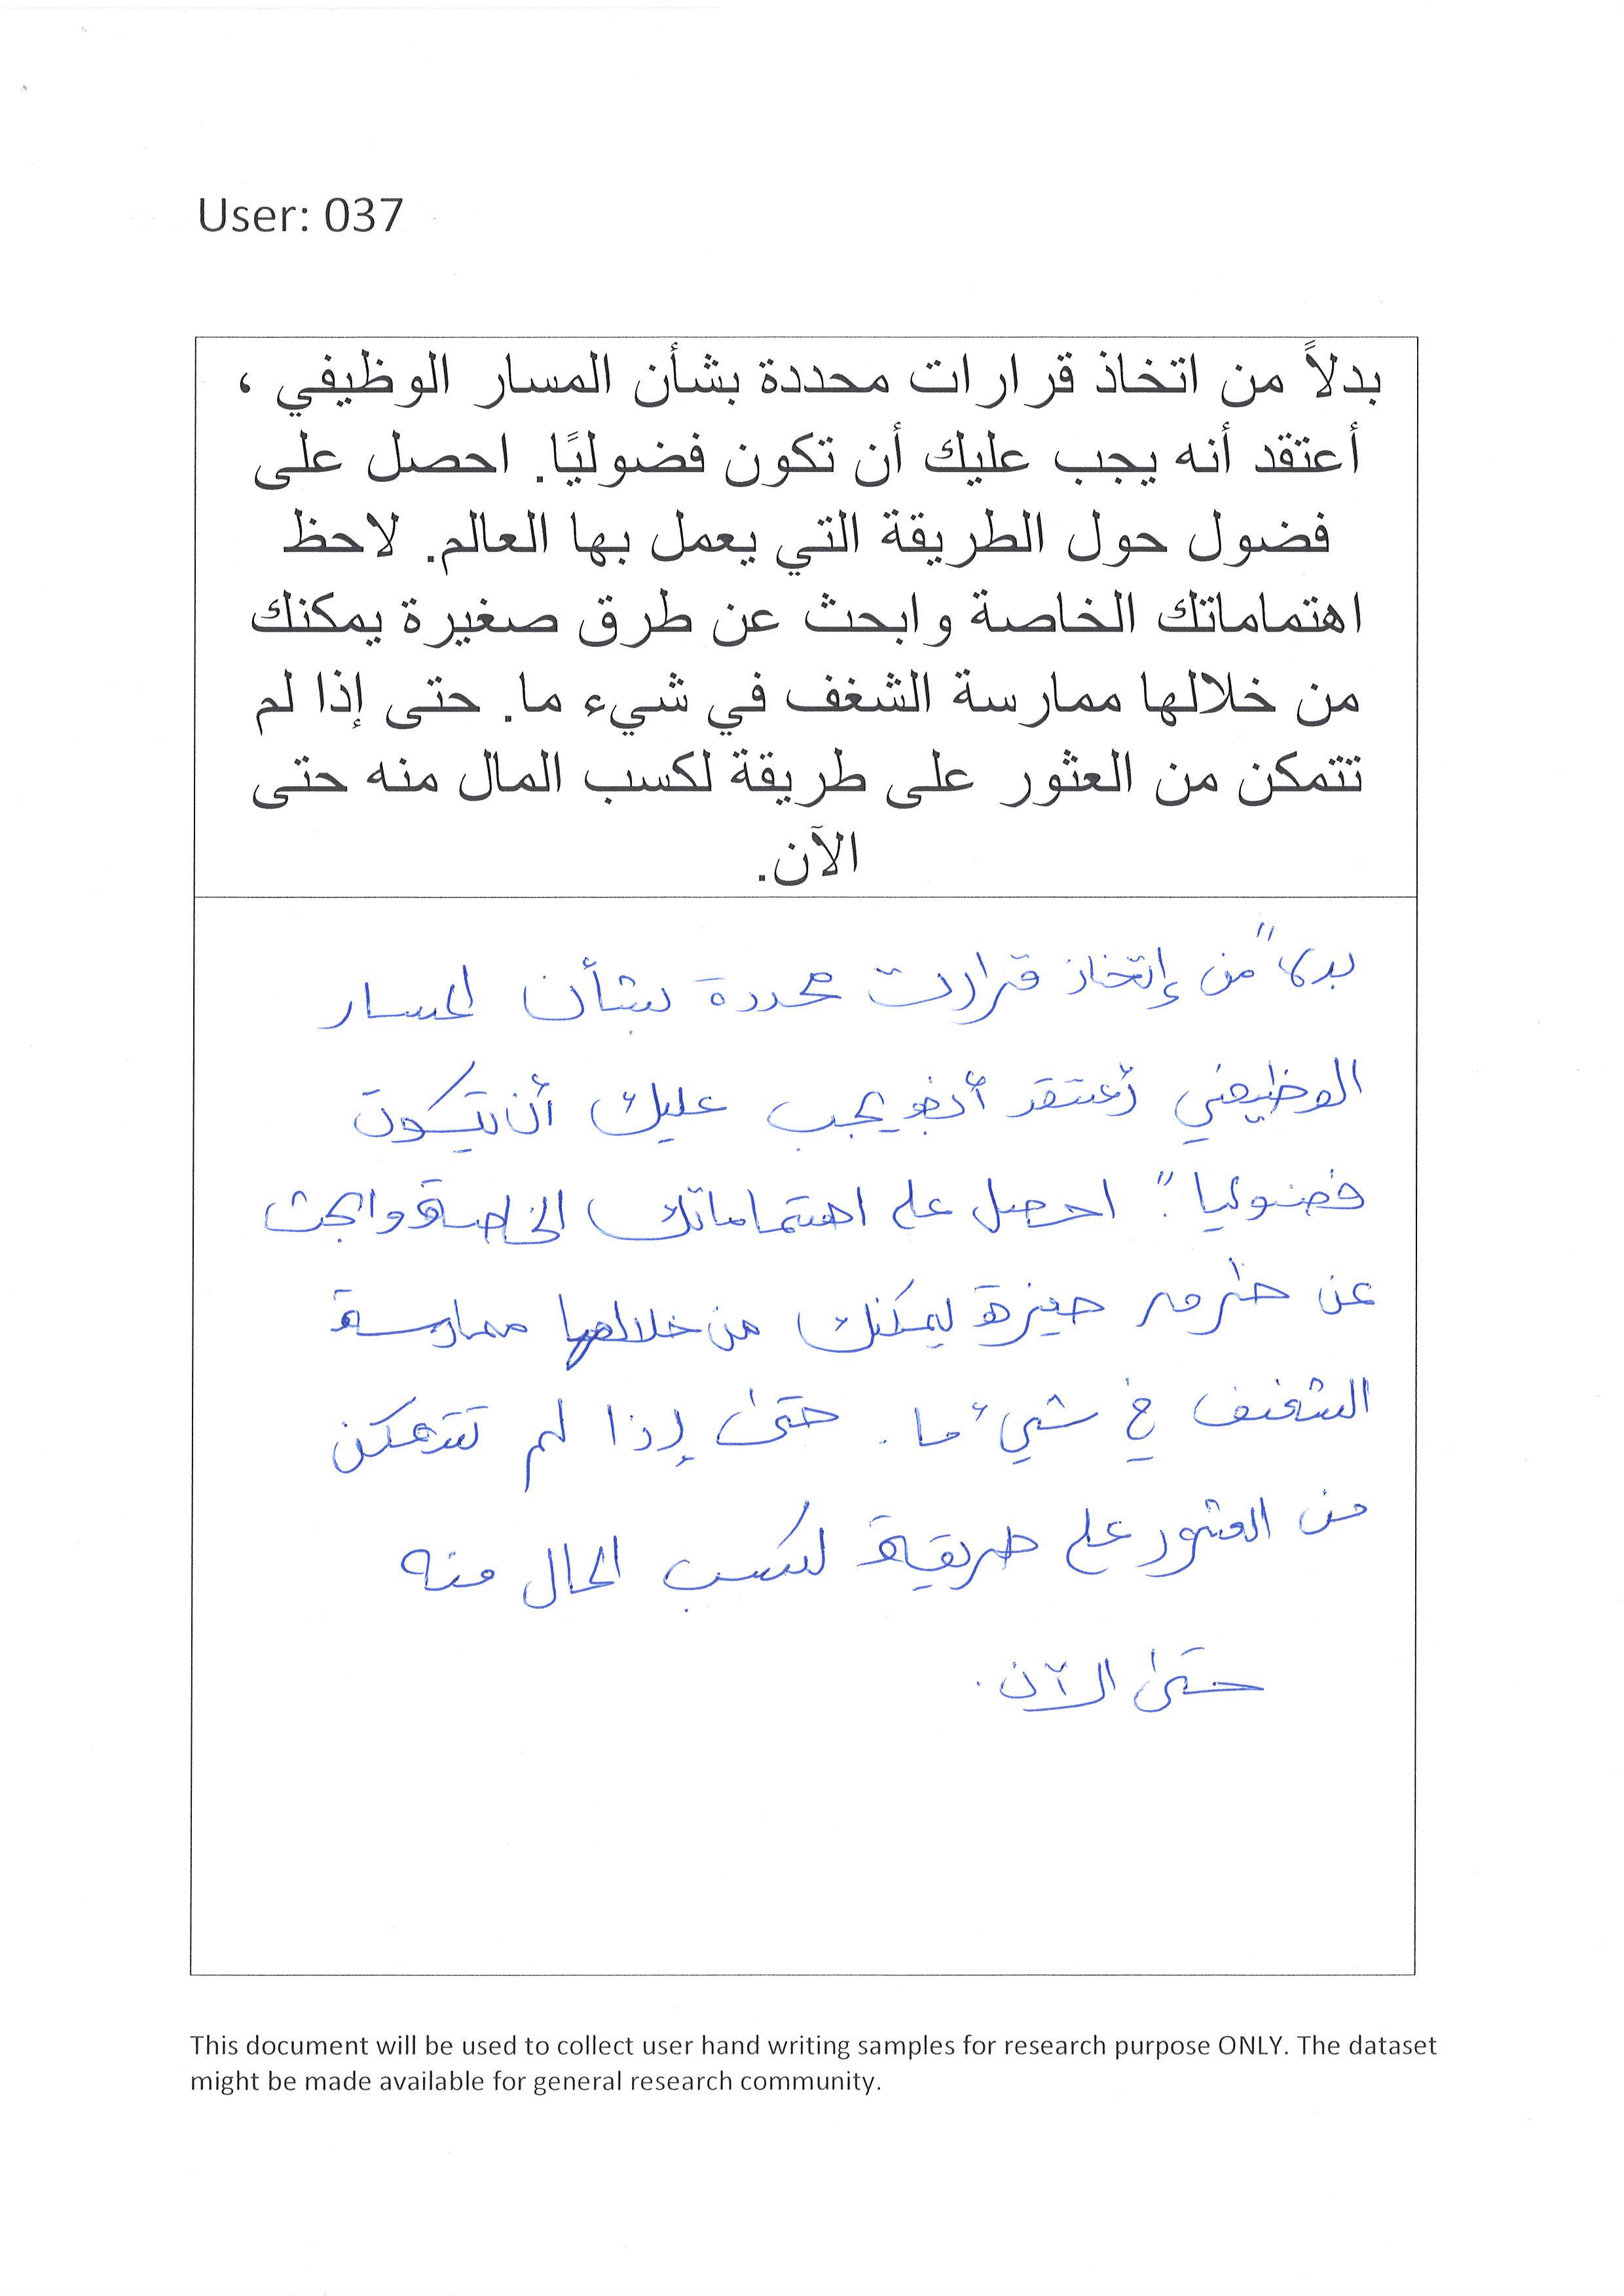 User: 037
بدلاً من اتخاذ قرارات محددة بشأن المسار الوظيفي ،
أعتقد أنه يجب عليك أن تكون فضوليًا. احصل على
فضول حول الطريقة التي يعمل بها العالم. لاحظ
اهتماماتك الخاصة وابحث عن طرق صغيرة يمكنك
من خلالها ممارسة الشغف في شيء ما. حتى إذا لم
تتمكن من العثور على طريقة لكسب المال منه حتى
الآن.
بدلاً من إتخاذ قرارت محددة بشأن المسار
الوظيفي أعتقد أنه يجب عليك أن تكون
فضولياً. احصل على اهتماماتك الخاصة وابحث
عن يمكنك من خلالها ممارسة
الشغف في شيء ما. حتى إذا لم تتمكن
من العثور على طريقة لكسب المال منه
حتى الآن.
This document will be used to collect user hand writing samples for research purpose ONLY. The dataset
might be made available for general research community.